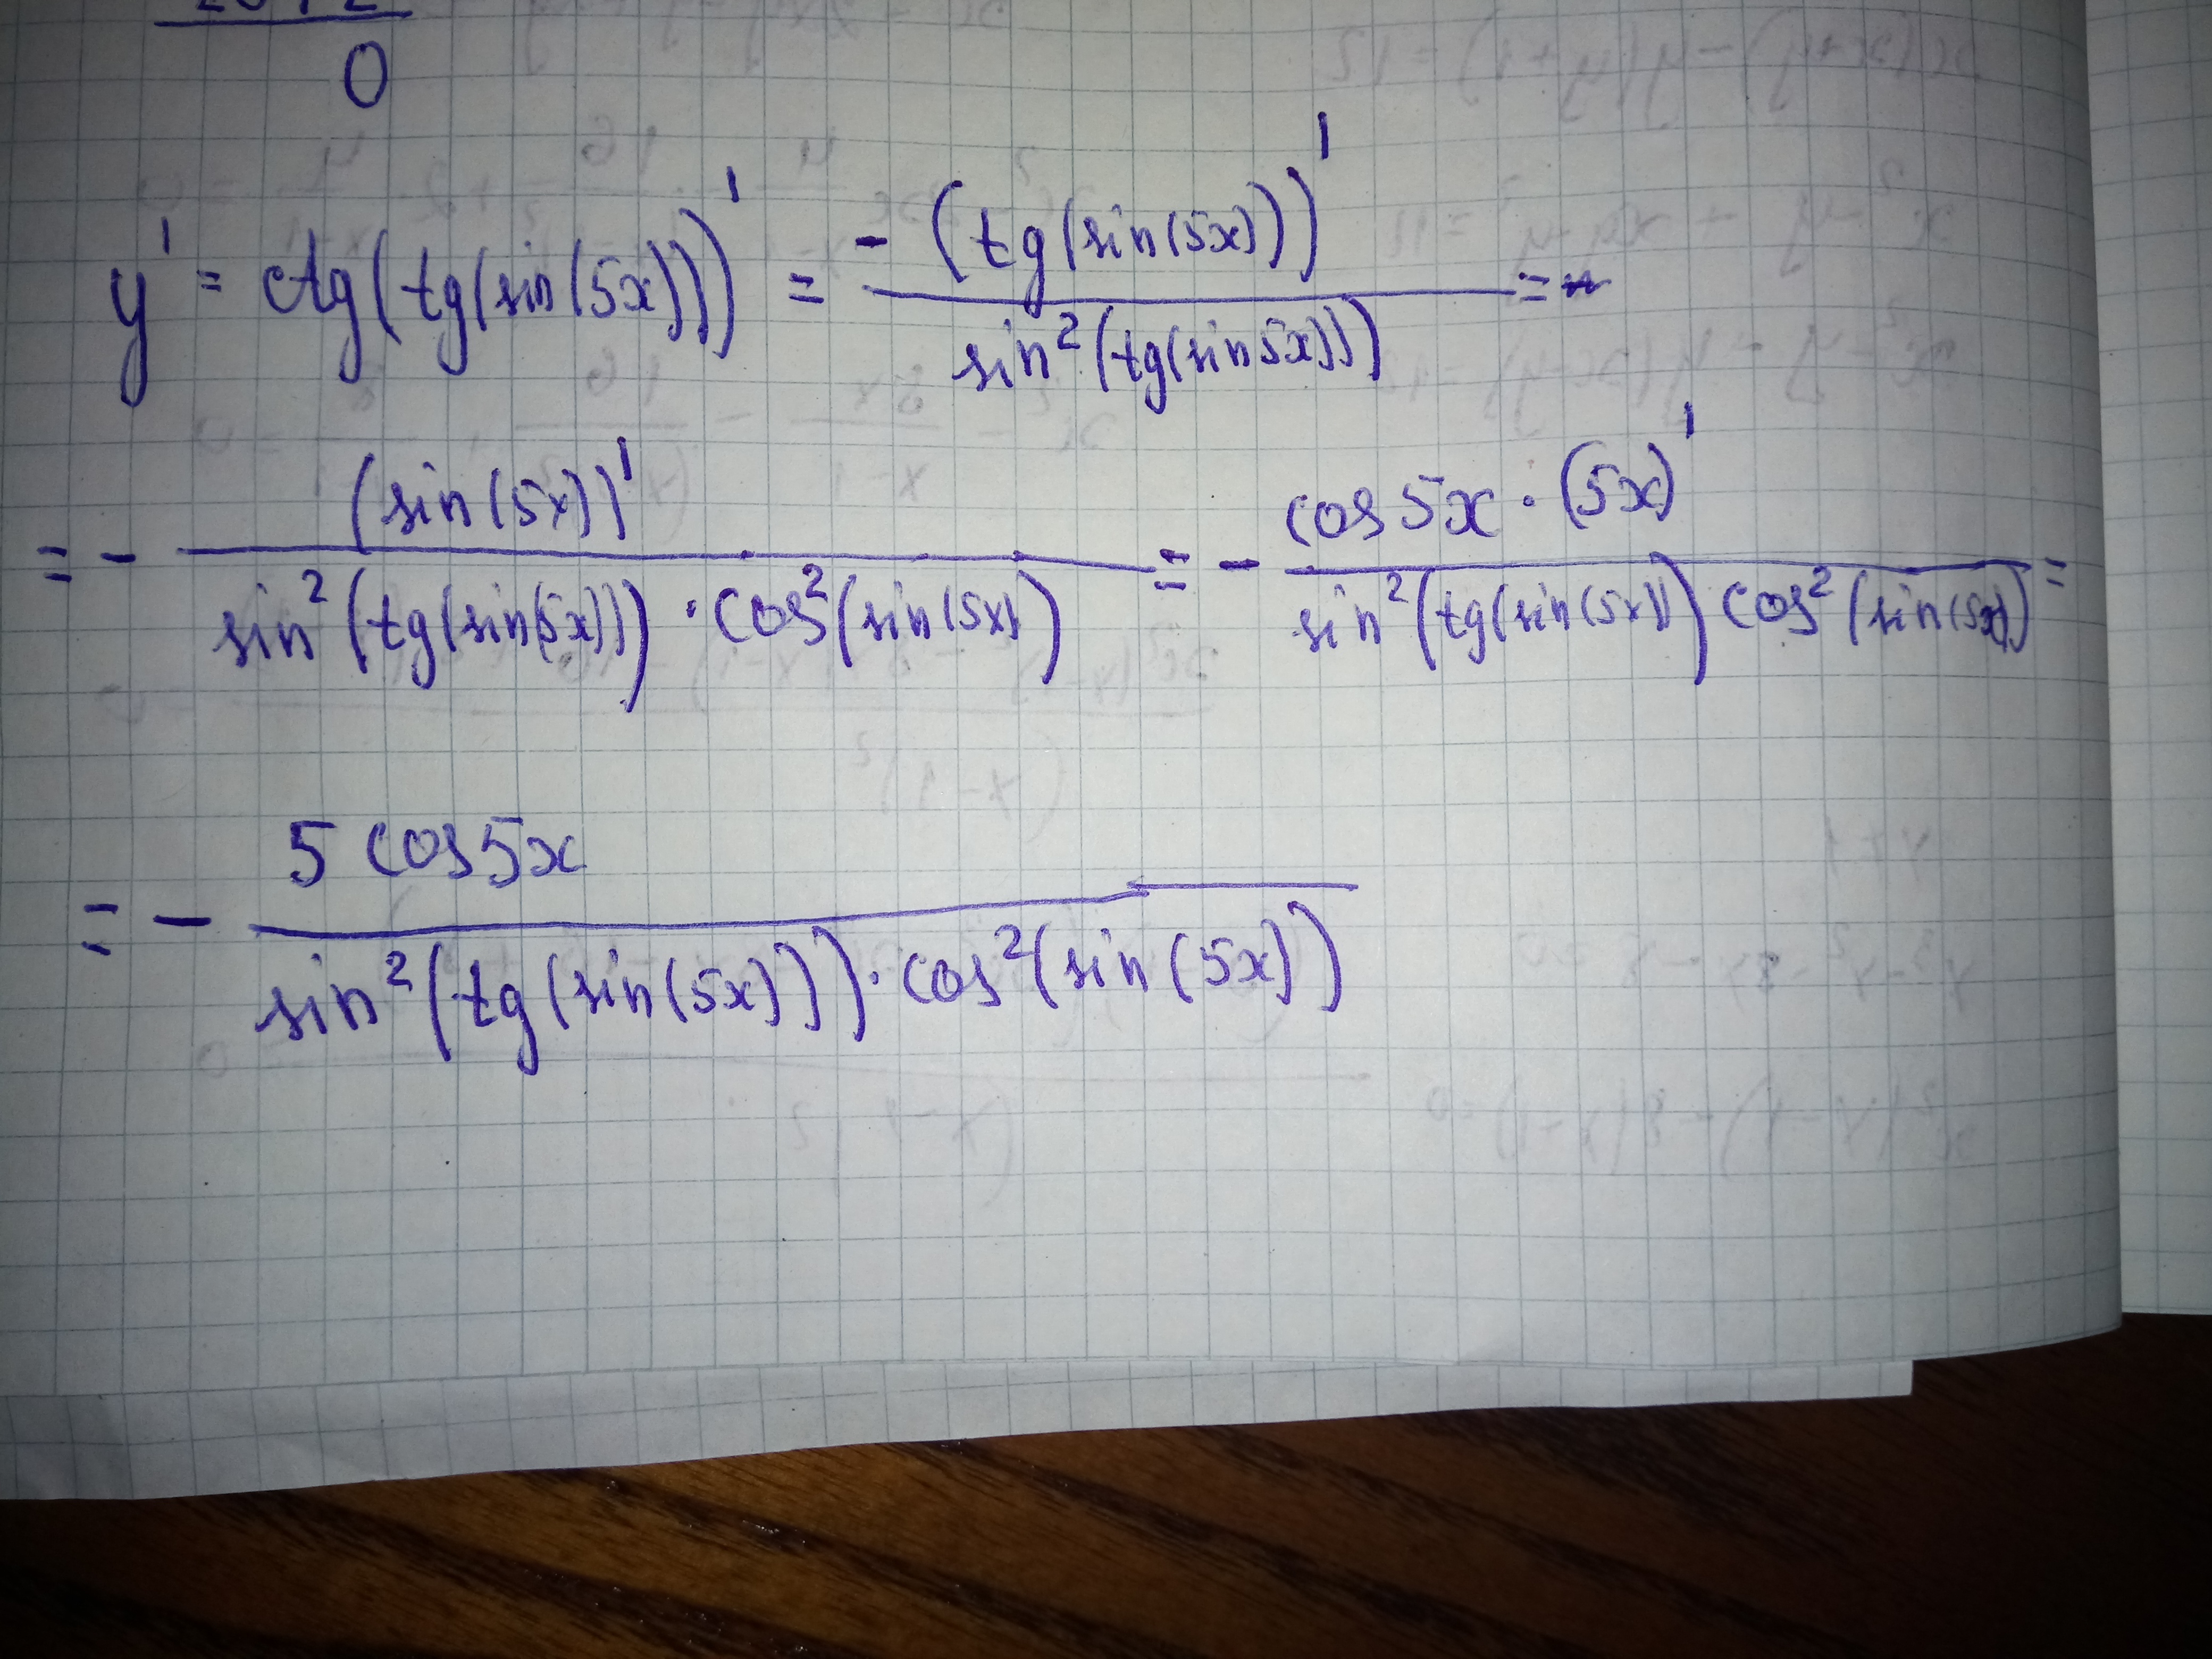 0
y' = ctg(tg(sin(5x)))' = -(tg(sin(5x)))' / sin²(tg(sin5x))) =
= - (sin(5x))' / sin²(tg(sin(5x))) · cos²(sin(5x)) = - cos5x · (5x)' / sin²(tg(sin(5x))) cos²(sin(5x)) =
= - 5 cos5x / sin²(tg(sin(5x))) · cos²(sin(5x))